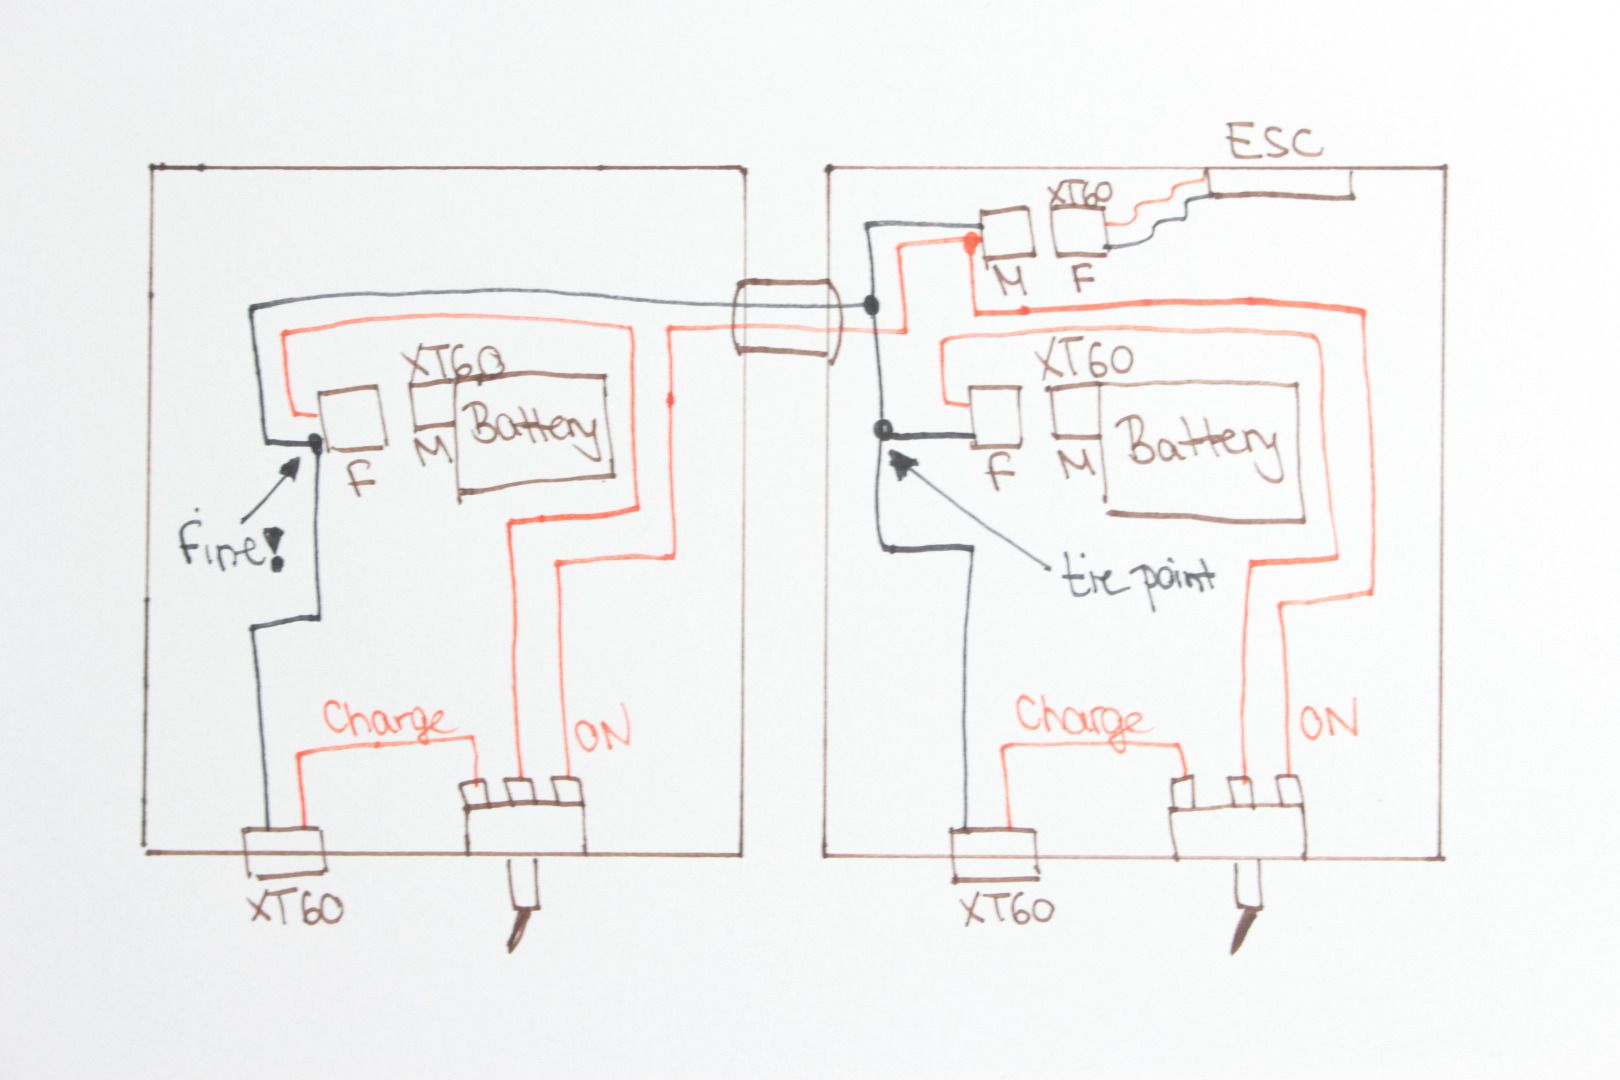 ESC
XT60
M
F
XT60
Battery
F
M
Fine!
Charge
ON
XT60
XT60
Battery
F
M
tie point
Charge
ON
XT60